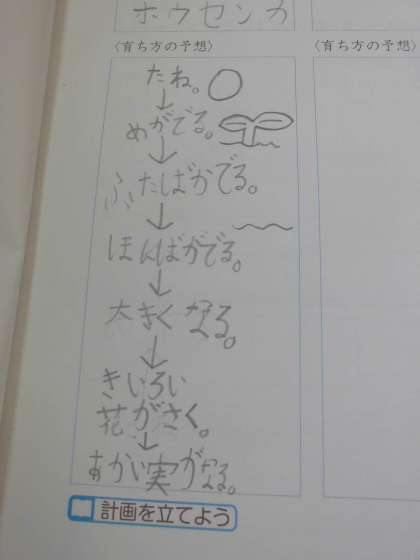 ホウセンカ
〈育ち方の予想〉
〈育ち方の予想〉
たね。
めがでる。
ふたばがでる。
ほんばがでる。
大きくなる。
きいろい
花がさく。
あかい実がなる。
計画を立てよう